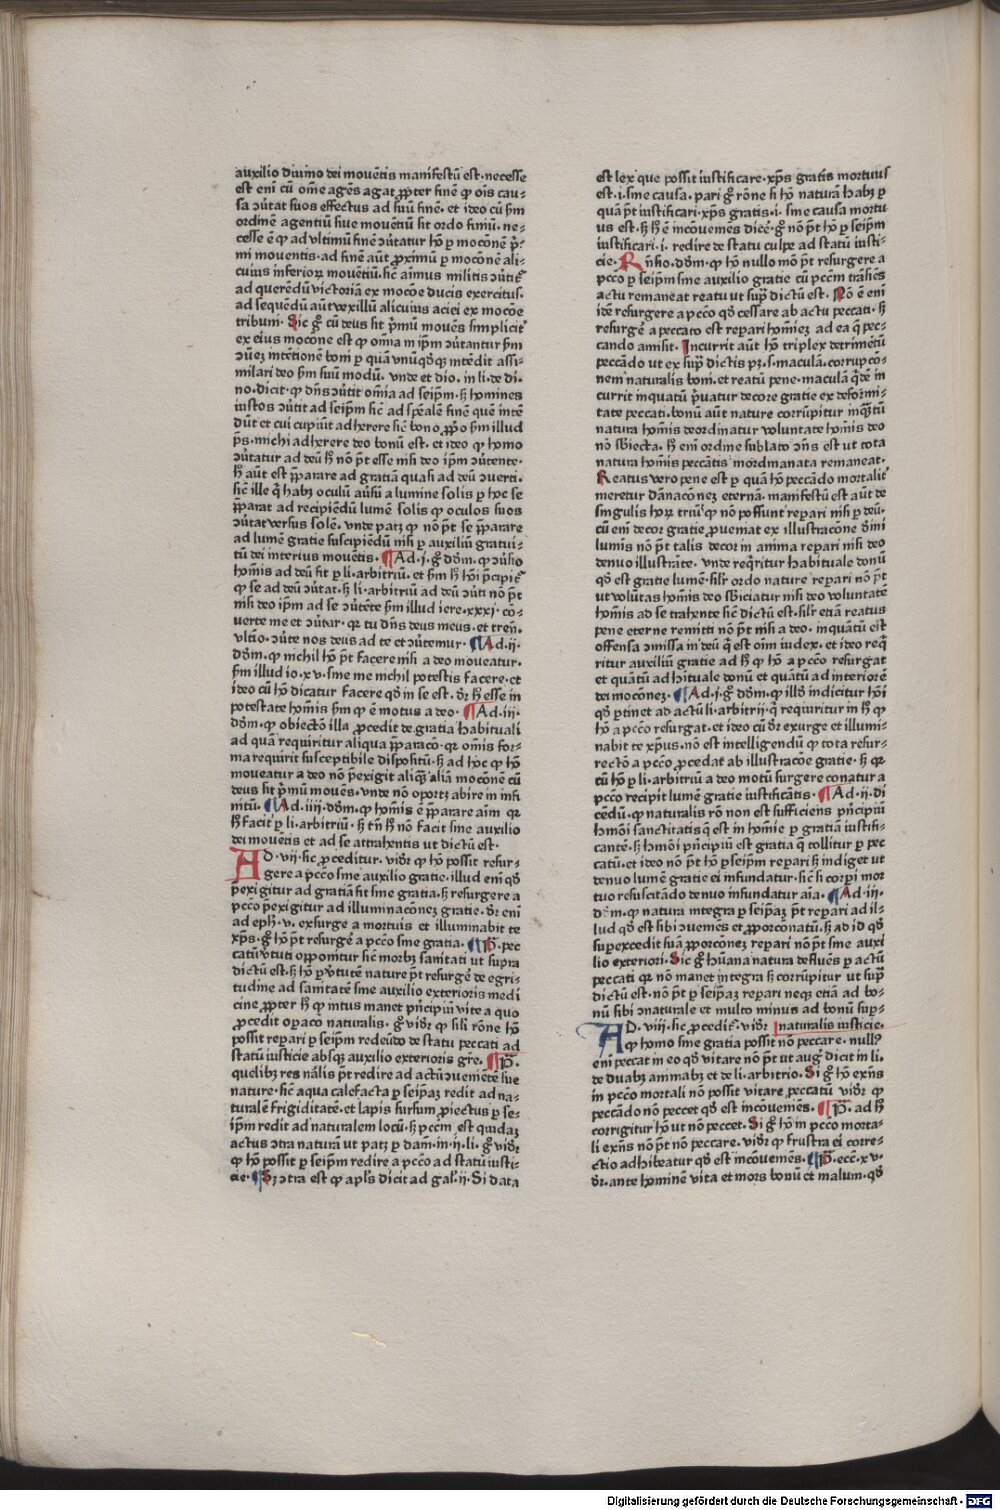 auxilio diuino dei mouētis manifestū est. necesse
est enī cū om̄e agēs agat ꝓpter finē ꝙ oīs cau-
sa ↄūtat suos effectus ad suū finē. et ideo cū ẜm
ordinē agentiū siue mouētiū sit ordo finiū. ne-
cesse ē ꝙ ad vltimū finē ↄūtatur hō p̲ mocōnē p̄-
mi mouentis. ad finē aūt ꝓximū p̲ mocōnē ali-
cuius inferioꝝ mouētiū. sic̄ aīmus militis ↄūtit̄
ad querēdū victoriā ex mocōe ducis exercitus.
ad sequēdū aūt vexillū alicuius aciei ex mocōe
tribuni. Sic ḡ cū deus sit p̄mū mouēs simplicit̄
ex eius mocōne est ꝙ omīa in ip̄m ↄūtantur ẜm
ↄūez intētionē boni p̲ quā vnūqd̄qꝫ intēdit assi-
milari deo ẜm suū modū. vnde et dio. in li. de di.
no. dicit. ꝙ dn̄s ↄūtit omīa ad seip̄m. ꝫ homines
iustos ↄūtit ad seip̄m sic̄ ad sp̄ealē finē quē intē
dūt et cui cupiūt adherere sic̄ bono ꝓp̄o ẜm illud
ps̄. michi adherere deo bonū est. et ideo ꝙ homo
ↄūtatur ad deū hꝰ nō pt̄ esse nisi deo ip̄m ↄūtente.
hꝰ aūt est p̄parare ad gratiā quasi ad deū ↄuerti.
sic̄ ille q̄ habꝫ oculū aūsū a lumine solis p̲ hoc se
p̄parat ad recipiēdū lumē solis ꝙ oculos suos
ↄūtat versus solē. vnde patꝫ ꝙ nō pt̄ se p̄parare
ad lumē gratie suscipiēdū nisi p̲ auxiliū gratui-
tū dei interius mouētis. ¶ Ad .i. ḡ dōm. ꝙ ↄūsio
homīs ad deū fit p̲ li. arbitriū. et ẜm hꝰ hōi p̄cipit̄
ꝙ se ad deū ↄūtat. ꝫ li. arbitriū ad deū ↄūti nō pt̄
nisi deo ip̄m ad se ↄūtēte ẜm illud iere. xxxi. cō-
uerte me et ↄūtar. qꝛ tu dn̄s deus meus. et tren̄.
vltīo. ↄūte nos deus ad te et ↄūtemur. ¶ Ad .ii.
dōm. ꝙ nichil hō pt̄ facere nisi a deo moueatur.
ẜm illud io. xv. sine me nichil potestis facere. et
ideo cū hō dicatur facere qd̄ in se est. dꝛ hꝰ esse in
potestate homīs ẜm ꝙ ē motus a deo. ¶ Ad .iii.
dōm. ꝙ obiectō illa ꝓcedit de gratia habituali
ad quā requiritur aliqua p̄paracō. qꝛ omīs for-
ma requirit susceptibile dispositū. ꝫ ad hoc ꝙ hō
moueatur a deo nō p̄exigit aliqꝫ aliā mocōnē cū
deus sit p̄mū mouēs. vnde nō oportꝫ abire in infi
nitū. ¶ Ad .iiii. dōm. ꝙ homīs ē p̄parare aīm qꝛ
hꝰ facit p̲ li. arbitriū. ꝫ tn̄ hꝰ nō facit sine auxilio
dei mouētis et ad se attrahentis ut dictū est.
AD .vii. sic ꝓceditur. vidꝛ ꝙ hō possit resur-
gere a pcc̄o sine auxilio gratie. illud enī qd̄
pexigitur ad gratiā fit sine gratia. ꝫ resurgere a
pcc̄o p̄exigitur ad illuminacōneꝫ gratie. dꝛ enī
ad eph. v. exsurge a mortuis et illuminabit te
xp̄s. ḡ hō pt̄ resurgē a pcc̄o sine gratia. ¶ P̄. pec
catū v̄tuti opponitur sic̄ morbꝫ sanitati ut supra
dictū est. ꝫ hō p̲ v̄tutē nature pt̄ resurgē de egri-
tudine ad sanitatē sine auxilio exterioris medi
cine ꝓpter hꝰ ꝙ intus manet p̄ncipiū vite a quo
ꝓcedit opacō naturalis. ḡ vidꝛ ꝙ sili rōne hō
possit repari p̲ seip̄m redeūdo de statu peccati ad
statū iusticie absqꝫ auxilio exterioris gr̄e. ¶ P̄.
quelibꝫ res nālis pt̄ redire ad actū ↄuenientē sue
nature. sic̄ aqua calefacta p̲ seip̄aꝫ redit ad na-
turalē frigiditatē. et lapis sursum ꝓiectus p̲ se-
ip̄m redit ad naturalem locū. ꝫ pccm̄ est quidaꝫ
actus ↄtra naturā ut patꝫ p̲ dam̄. in .ii. li. ḡ vidꝛ
ꝙ hō possit p̲ seip̄m redire a pcc̄o ad statū iusti-
cie. ¶ Sꝫ ↄtra est ꝙ apl̄s dicit ad gal̄. ii. Si data
est lex que possit iustificare. xp̄s gratis mortuus
est. i. sine causa. pari ḡ rōne si hō naturā habꝫ p̲
quā pt̄ iustificari. xp̄s gratis. i. sine causa mortu
us est. ꝫ hꝰ ē incōueniēs dicē. ḡ nō pt̄ hō p̲ seip̄m
iustificari. i. redire de statu culpe ad statū iusti-
cie. Rn̄sio. dōm. ꝙ hō nullo mō pt̄ resurgere a
pcc̄o p̲ seip̄m sine auxilio gratie cū pccm̄ trāsiēs
actu remaneat reatu ut sup̄ dictū est. Nō ē enī
idē resurgere a pcc̄o qd̄ cessare ab actu peccati. ꝫ
resurgē a peccato est repari homīeꝫ ad ea q̄ pec-
cando amisit. Incurrit aūt hō triplex detrimētū
peccādo ut ex sup̄ dictis pꝫ. s. maculā. corrupcō-
nem naturalis boni. et reatū pene. maculā qd̄e in
currit inquatū p̄uatur decore gratie ex deformi-
tate peccati. bonū aūt nature corrūpitur inq̄tū
natura homīs deordinatur voluntate homīs deo
nō sbiecta. hꝰ enī ordine sublato ↄn̄s est ut tota
natura homīs peccātis inordinanata remaneat.
Reatus vero pene est p̲ quā hō peccādo mortalit̄
meretur dānacōneꝫ eternā. manifestū est aūt de
singulis hoꝝ triū ꝙ nō possunt repari nisi p̲ deū.
cū enī decor gratie ꝓueniat ex illustracōne diīni
luminis nō pt̄ talis decor in anima repari nisi deo
denuo illustrāte. vnde req̄ritur habituale donū
qd̄ est gratie lumē. silr̄ ordo nature repari nō pt̄
ut volūtas homīs deo sbiciatur nisi deo voluntatē
homīs ad se trahente sic̄ dictū est. silr̄ etiā reatus
pene eterne remitti nō pt̄ nisi a deo. in quātū est
offensa ↄmissa in deū q̄ est oīm iudex. et ideo req̄
ritur auxiliū gratie ad hꝰ ꝙ hō a pcc̄o resurgat
et quātū ad hituale donū et quātū ad interiorē
dei mocōneꝫ. ¶ Ad .i. ḡ dōm. ꝙ illd̄ indicitur hōi
qd̄ p̲tinet ad actū li. arbitrii. q̄ requiritur in hꝰ ꝙ
hō a pcc̄o resurgat. et ideo cū dꝛ exurge et illumi-
nabit te xp̄us. nō est intelligendū ꝙ tota resur-
rectō a pcc̄o ꝓcedat ab illustracōe gratie. ꝫ qꝛ
cū hō p̲ li. arbitriū a deo motū surgere conatur a
pcc̄o recipit lumē gratie iustificātis. ¶ Ad .ii. di
cedū. ꝙ naturalis rō non est sufficiens p̄ncipiū
hmōi sanctitatis q̄ est in homīe p̲ gratiā iustifi-
cantē. ꝫ hmōi p̄ncipiū est gratia q̄ tollitur p̲ pec
catū. et ideo nō pt̄ hō p̲ seip̄m repari ꝫ indiget ut
denuo lumē gratie ei infundatur. sic̄ si corpi mor
tuo resuscitādo denuo infundatur aīa. ¶ Ad .iii.
dōm. ꝙ natura integra p̲ seip̄aꝫ pt̄ repari ad il-
lud qd̄ est sibi ↄueniēs et ꝓporconatū. ꝫ ad id qd̄
supexcedit suā ꝓporcōneꝫ repari nō pt̄ sine auxi
lio exteriori. Sic ḡ hūana natura defluēs p̲ actū
peccati qꝛ nō manet integra ꝫ corrūpitur ut sup̄
dictū est. nō pt̄ p̲ seip̄aꝫ repari neqꝫ etiā ad bo-
nū sibi ↄnaturale et multo minus ad bonū sup-
AD .viii. sic ꝓcedit̄. vidꝛ naturalis iusticie.
ꝙ homo sine gratia possit nō peccare. nullꝰ
enī peccat in eo qd̄ vitare nō pt̄ ut aug. dicit in li.
de duabꝫ animabꝫ et de li. arbitrio. Si ḡ hō exn̄s
in pcc̄o mortali nō possit vitare peccatū vidꝛ ꝙ
peccādo nō peccet qd̄ est incōueniēs. ¶ P̄. ad hꝰ
corrigitur hō ut nō peccet. Si ḡ hō in pcc̄o morta-
li exn̄s nō pt̄ nō peccare. vidꝛ ꝙ frustra ei corre-
ctio adhibeatur qd̄ est incōueniēs. ¶ P̄. ecc̄. xv.
dꝛ. ante hominē vita et mors bonū et malum. qd̄
Digitalisierung gefördert durch die Deutsche Forschungsgemeinschaft - DFG